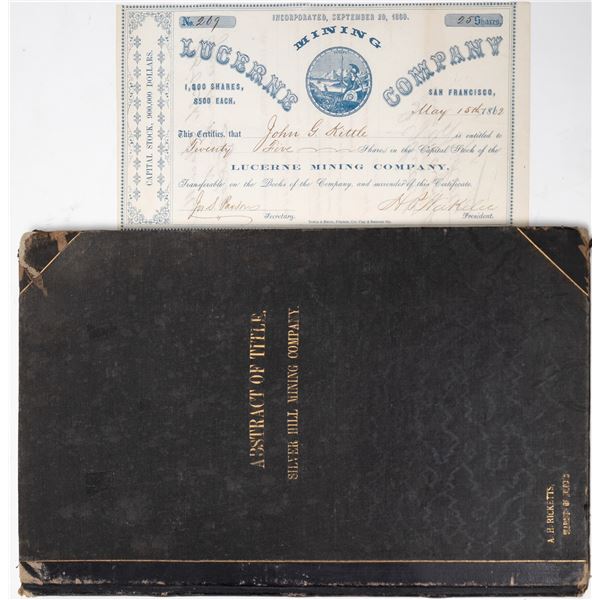 No. 209
INCORPORATED, SEPTEMBER 20, 1860.
25 Shares
LUCERNE MINING COMPANY
1,800 SHARES,
$500 EACH.
SAN FRANCISCO,
May 15th 1862
CAPITAL STOCK, 900,000 DOLLARS.
This Certifies, that John G Kittle is entitled to
Twenty Five Shares in the Capital Stock of the
LUCERNE MINING COMPANY,
Transferable on the Books of the Company, and surrender of this Certificate.
Jno S. Parsons
Secretary.
President.
ABSTRACT OF TITLE,
SILVER HILL MINING COMPANY.
A. H. RICKETTS,